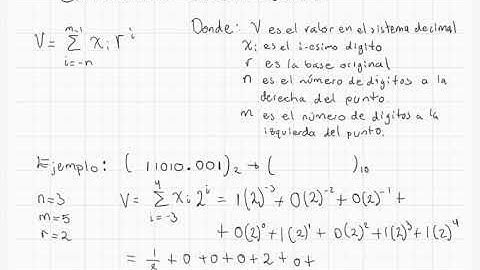 V = Σ_{i=-n}^{m-1} x_i r^i
Donde: V es el valor en el sistema decimal
x_i es el i-esimo digito
r es la base original
n es el número de digitos a la
derecha del punto
m es el número de digitos a la
izquierda del punto.
Ejemplo: ( 11010.001)_2 → ( )_10
n=3
m=5
r=2
V = Σ_{i=-3}^{4} x_i 2^i = 1(2)^{-3} + 0(2)^{-2} + 0(2)^{-1} +
+ 0(2)^0 + 1(2)^1 + 0(2)^2 + 1(2)^3 + 1(2)^4
= 1/8 + 0 + 0 + 0 + 2 + 0 +